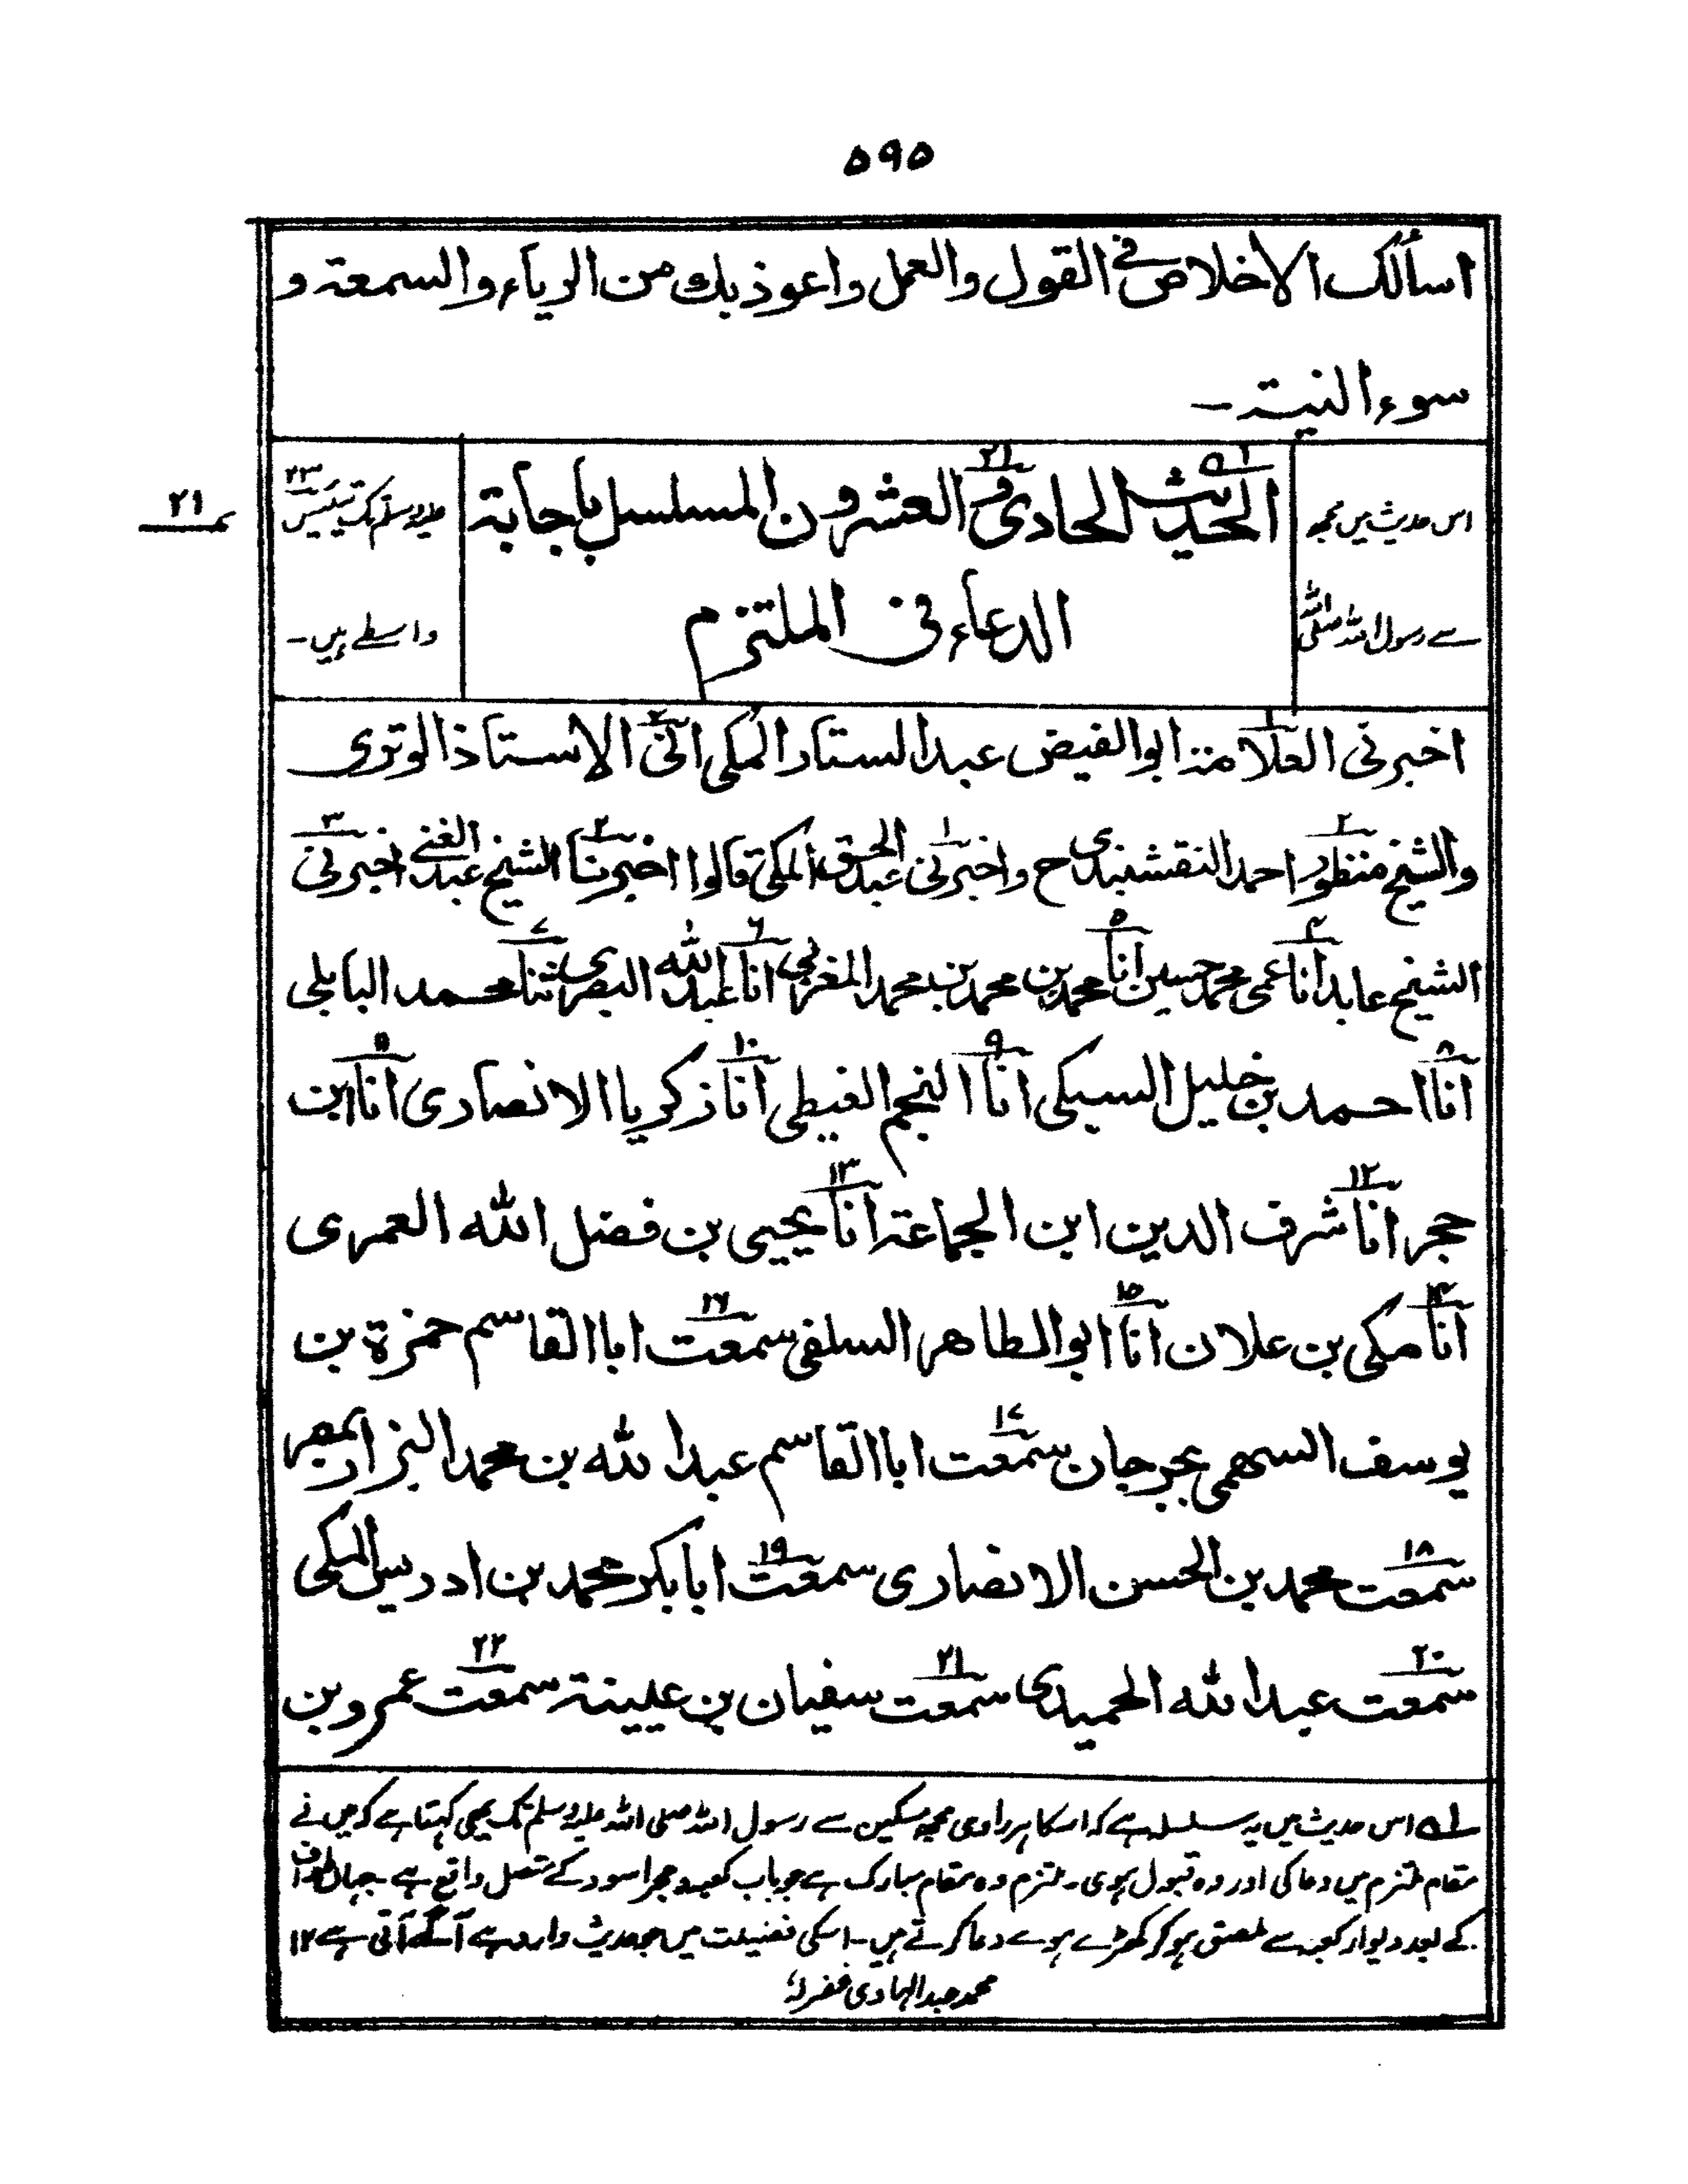 ۵۹۵
اسألک الاخلاص فی القول والعمل واعوذ بك من الریاء والسمعة و
سوء النیة ـ
اس حدیث میں مجھ
سے رسول اللہ صلی اللہ
الحدیث الحادی و العشرون المسلسل باجابة
الدعاء فی الملتزم
علیہ وسلم تک تیئیس ۲۳
واسطے ہیں۔
۲۱
اخبرنی العلامة ابوالفیض عبدالستار المکی انی الاستاذ الوتری
والشیخ منظور احمد النقشبندی ح واخبرنی عبدالحق المکی قالوا اخبرنا الشیخ عبدالغنی اخبرنی
الشیخ عابد انا عمی محمد حسین انا محمد بن محمد بن محمد المغربی انا عبدالله البصری ثنا محمد البابلی
انا احمد بن خلیل السبکی انا النجم الغیطی انا زکریا الانصاری انا ابن
حجر انا شرف الدین ابن الجماعة انا یحیی بن فضل الله العمری
انا مکی بن علان انا ابوالطاهر السلفی سمعت اباالقاسم حمزة بن
یوسف السهمی بجرجان سمعت اباالقاسم عبدالله بن محمد البزار بمصر
سمعت محمد بن الحسن الانصاری سمعت ابابکر محمد بن ادریس المکی
سمعت عبدالله الحمیدی سمعت سفیان بن عیینة سمعت عمرو بن
لہ اس حدیث میں یہ سلسلہ ہے کہ اسکا ہر راوی مجھ مسکین سے رسول اللہ صلی اللہ علیہ وسلم تک یہی کہتا ہے کہ میں نے
مقام ملتزم میں دعا کی اور وہ قبول ہوی۔ ملتزم وہ مقام مبارک ہے جو باب کعبہ و حجر اسود کے متصل واقع ہے۔ جہاں طواف
کے بعد دیوار کعبہ سے ملصق ہو کر کھڑے ہوے دعا کرتے ہیں۔ اسکی فضیلت میں جو حدیث وارد ہے آگے آتی ہے ۱۲
محمد عبدالہادی غفرلہ